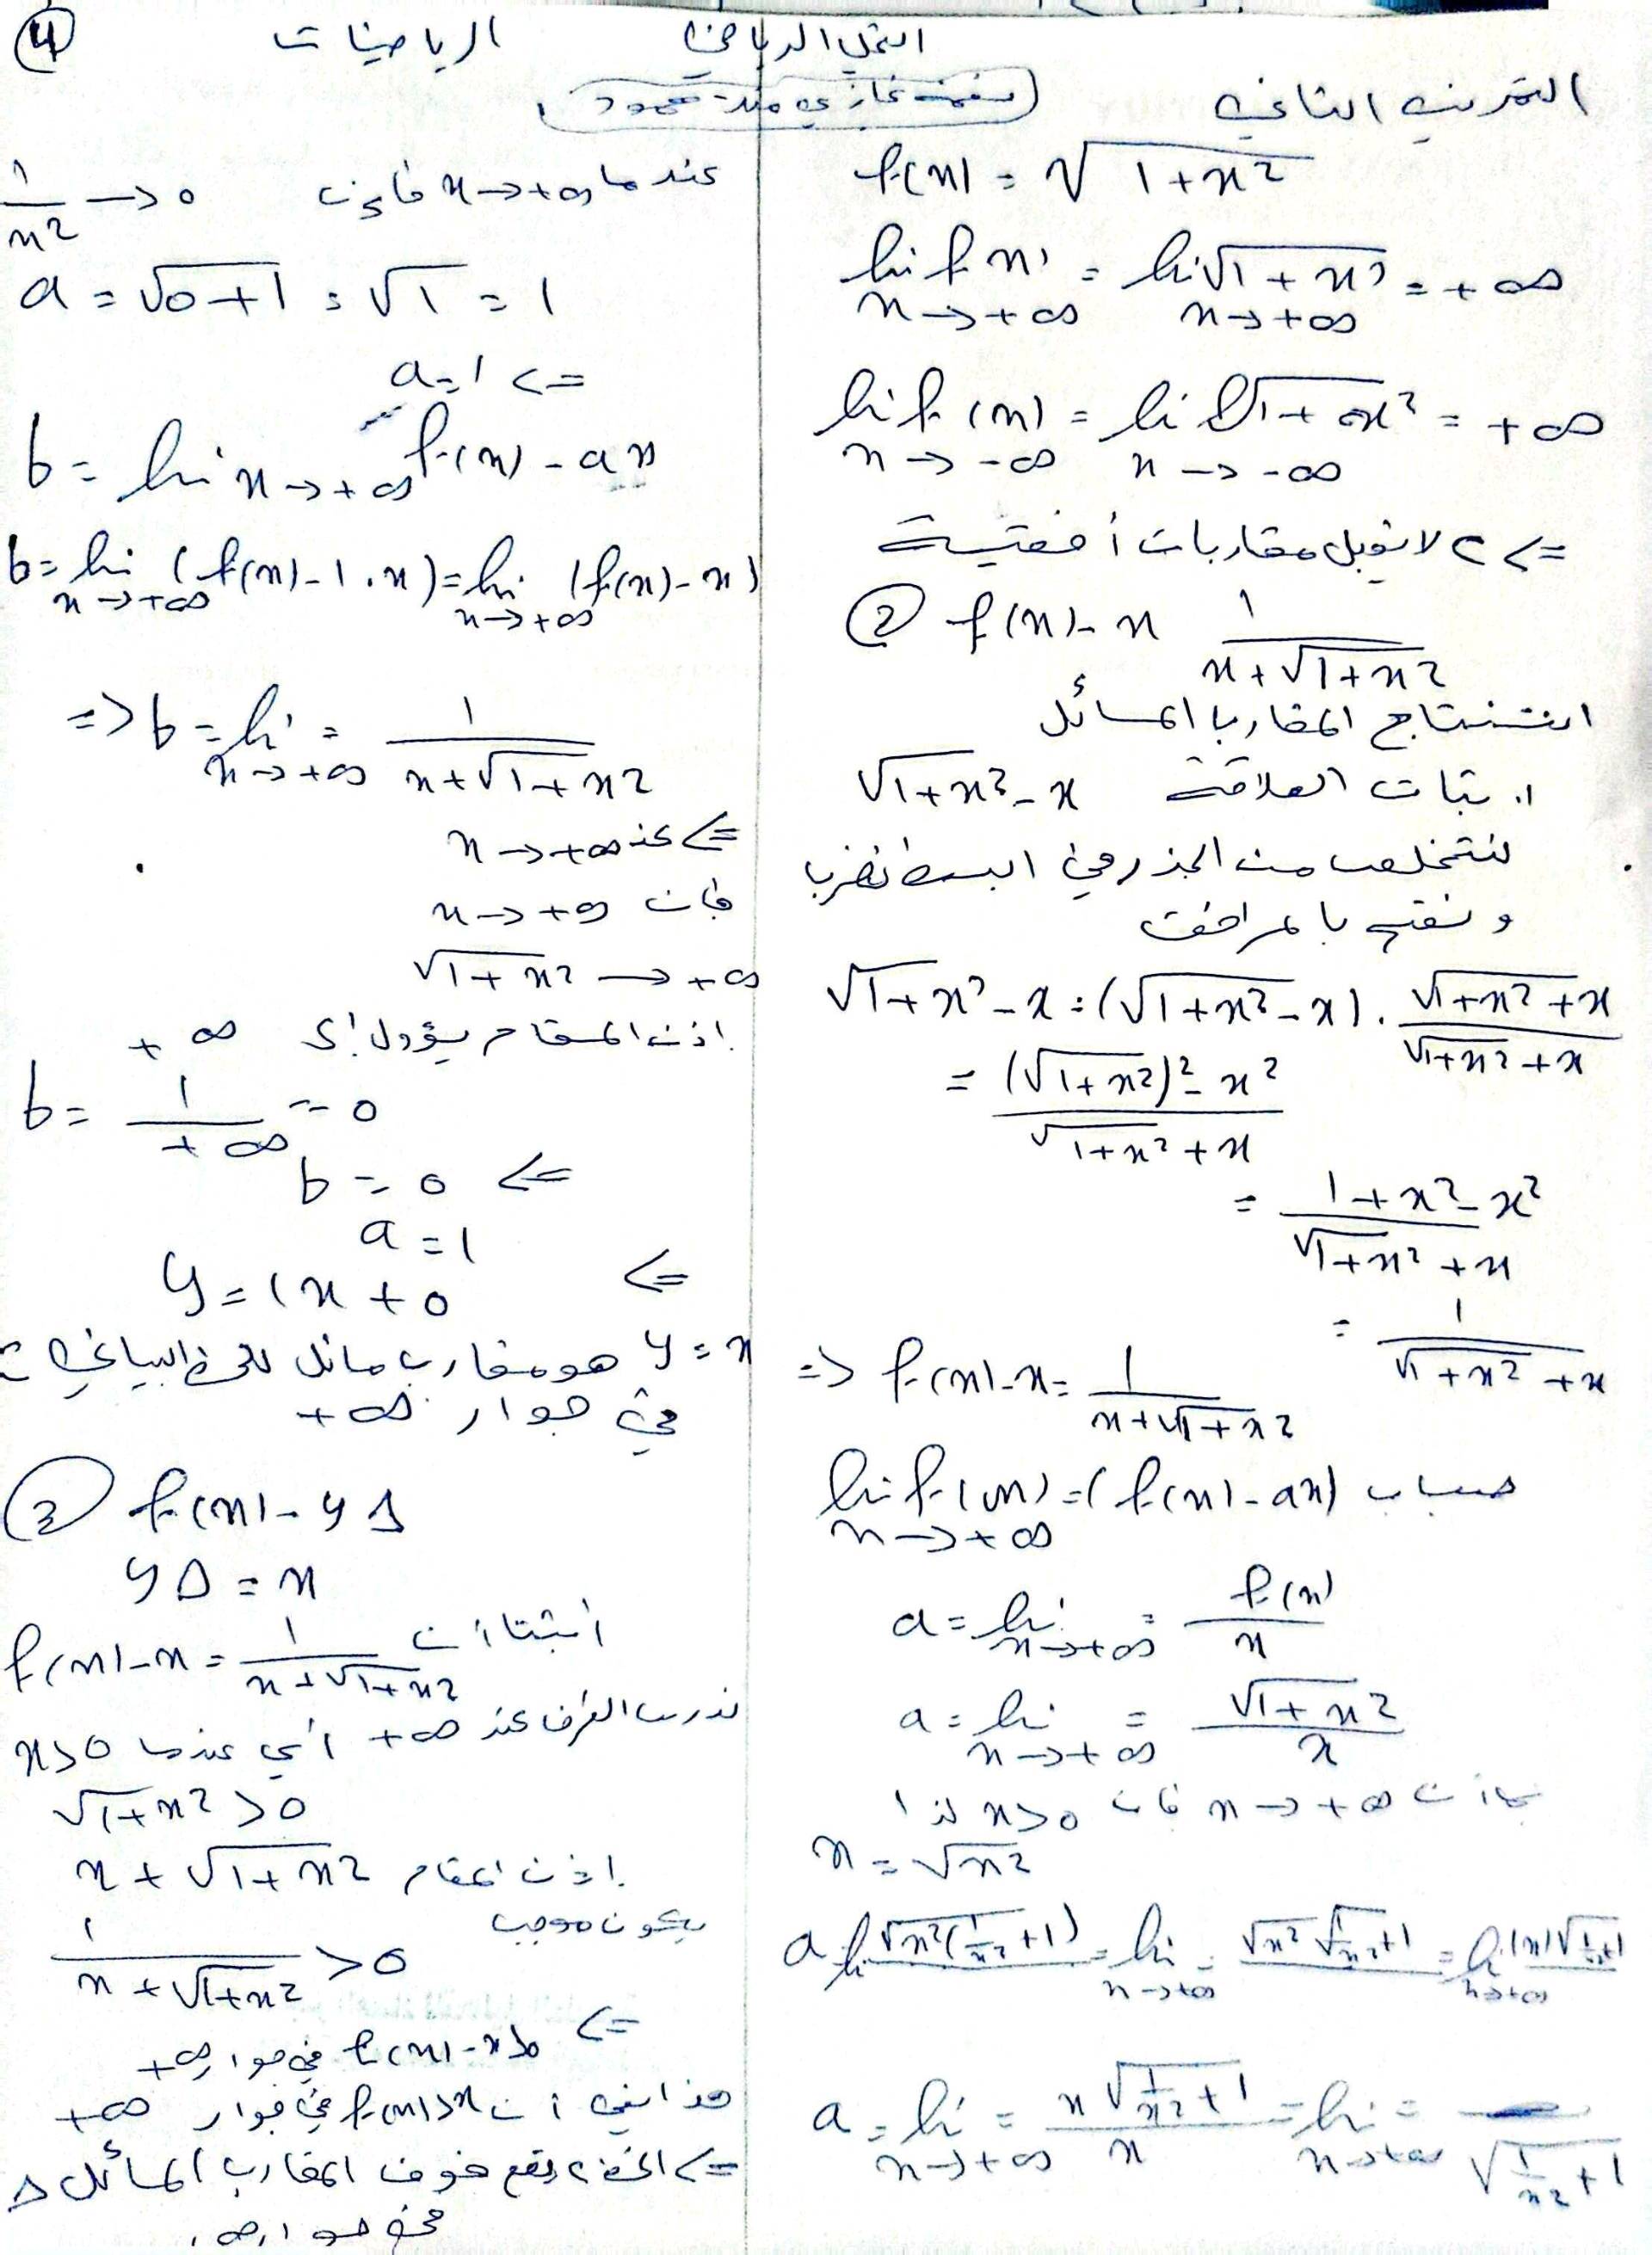 ④ الرياضيات التحليل الرياضي
التمرين الثاني
f(x) = √(1+x²)
lim f(x) = lim √(1+x²) = +∞
x→+∞ x→+∞
lim f(x) = lim √(1+x²) = +∞
x→-∞ x→-∞
=> C لا يقبل مقاربات أفقية
② f(x) - x 1/(x+√(1+x²))
استنتاج المقارب المائل
إثبات العلاقة √(1+x²) - x
لنتخلص من الجذر في البسط نضرب
و نقسم بالمرافق
√(1+x²) - x = (√(1+x²) - x) . (√(1+x²) + x)/(√(1+x²) + x)
= ((√(1+x²))² - x²)/(√(1+x²) + x)
= (1+x² - x²)/(√(1+x²) + x)
= 1/(√(1+x²) + x)
=> f(x) - x = 1/(x+√(1+x²))
حساب lim f(x) = (f(x) - ax)
x→+∞
a = lim = f(x)/x
x→+∞
a = lim = √(1+x²)/x
x→+∞
بما أن x→+∞ فإن x>0 لذا
x = √x²
a lim √(x²(1/x²+1)) = lim = √x² √(1/x²+1) = lim |x|√(1/x²+1)
x→+∞ x→+∞
a = lim = x√(1/x²+1)/x = lim = √(1/x²+1)
x→+∞ x→+∞
عندما x→+∞ فإن 1/x² → 0
a = √(0+1) = √1 = 1
a = 1 <=
b = lim x→+∞ f(x) - ax
b = lim (f(x) - 1.x) = lim (f(x) - x)
x→+∞ x→+∞
=> b = lim = 1/(x+√(1+x²))
x→+∞
<= عند x→+∞
فإن x→+∞
√(1+x²) → +∞
إذن المقام يؤول إلى +∞
b = 1/+∞ = 0
b = 0 <=
a = 1
y = 1x + 0 <=
y = x هو مقارب مائل للخط البياني C
في جوار +∞
③ f(x) - yΔ
yΔ = x
أثبتنا أن f(x) - x = 1/(x+√(1+x²))
ندرس الفرق عند +∞ أي عندما x>0
√(1+x²) > 0
إذن المقام x + √(1+x²)
يكون موجب
1/(x+√(1+x²)) > 0
<= f(x) - x>0 في جوار +∞
هذا يعني أن f(x)>x في جوار +∞
=> الخط C يقع فوق المقارب المائل Δ
في جوار ∞